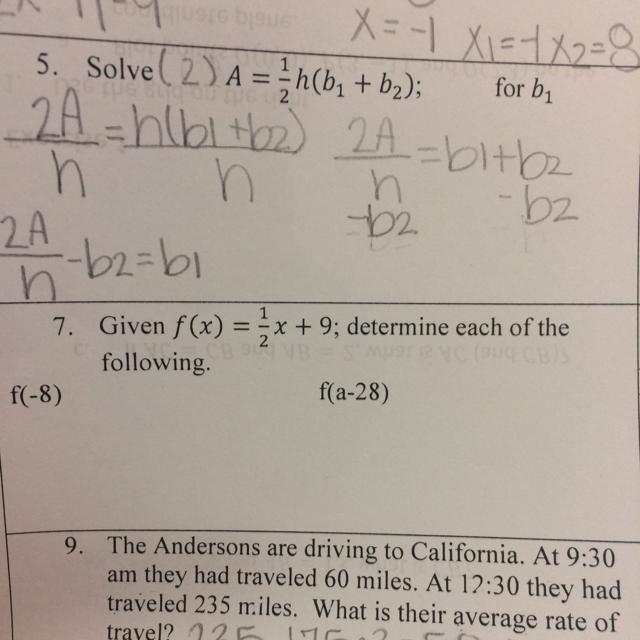 x = -1 x1=-1 x2=8
5. Solve (2) A = 1/2 h(b₁ + b₂); for b₁
2A/h = h(b1+b2)/h
2A/h = b1+b2
-b2 -b2
2A/h -b2=b1
7. Given f(x) = 1/2 x + 9; determine each of the
following.
f(-8) f(a-28)
9. The Andersons are driving to California. At 9:30
am they had traveled 60 miles. At 12:30 they had
traveled 235 miles. What is their average rate of
travel?